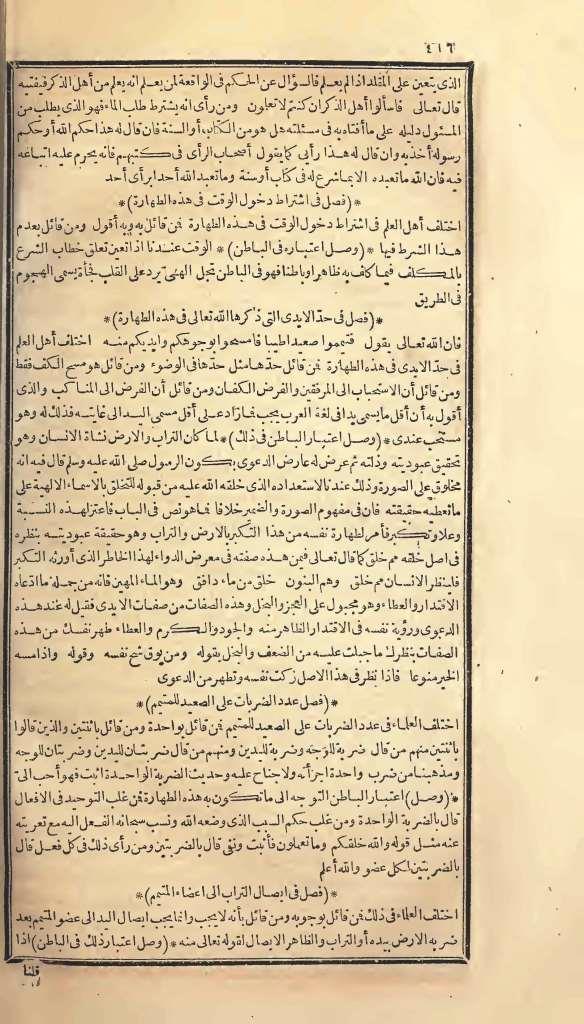 ٤١٦
الذى يتعين على المقلد اذا لم يعلم فالسؤال عن الحكم فى الواقعة لمن يعلم انه يعلم من أهل الذكر فيفتيه
قال تعالى فاسألوا أهل الذكر ان كنتم لا تعلمون ومن رأى انه يشترط طلب الماء فهو الذى يطلب من
المسئول دليله على ما أفتاه به فى مسئلته هل هو من الكتاب أو السنة فان قال له هذا حكم الله أو حكم
رسوله أخذ به وان قال له هذا رأيى كما يقول أصحاب الرأى فى كتبهم فانه يحرم عليه اتباعه
فيه فان الله ما تعبده الا بما شرع له فى كتاب أو سنة وما تعبد الله أحدا برأى أحد
*(فصل فى اشتراط دخول الوقت فى هذه الطهارة)*
اختلف أهل العلم فى اشتراط دخول الوقت فى هذه الطهارة فمن قائل به وبه أقول ومن قائل بعدم
هذا الشرط فيها *(وصل اعتباره فى الباطن)* الوقت عندنا اذا تعين تعلق خطاب الشرع
بالمكلف فيما كلف به ظاهرا وباطنا فهو فى الباطن تجل الهىّ يرد على القلب فجأة يسمى الهجوم
فى الطريق
*(فصل فى حدّ الايدى التى ذكرها الله تعالى فى هذه الطهارة)*
فان الله تعالى يقول فتيمموا صعيدا طيبا فامسحوا بوجوهكم وأيديكم منه اختلف أهل العلم
فى حدّ الايدى فى هذه الطهارة فمن قائل حدّها مثل حدّها فى الوضوء ومن قائل هو مسح الكف فقط
ومن قائل أن الاستحباب الى المرفقين والفرض الكفان ومن قائل أن الفرض الى المناكب والذى
أقول به أن أقل ما يسمى يدا فى لغة العرب يجب فما زاد على أقل مسمى اليد الى غايته فذلك له وهو
مستحب عندى *(وصل اعتبار الباطن فى ذلك)* لما كان التراب والارض نشأة الانسان وهو
تحقيق عبوديته وذلته ثم عرض له عارض الدعوى بكون الرسول صلى الله عليه وسلم قال فيه انه
مخلوق على الصورة وذلك عندنا لاستعداده الذى خلقه الله عليه من قبوله للتخلق بالاسماء الالهية على
ما تعطيه حقيقته فان فى مفهوم الصورة والضمير خلافا فما هو نص فى الباب فاعتز لهذه النسبة
وعلا وتكبر فأمر لطهارة نفسه من هذا التكبر بالارض والتراب وهو حقيقة عبوديته بنظره
فى أصل خلقه مم خلق كما قال تعالى فيمن هذه صفته فى معرض الدواء لهذا الخاطر الذى أورثه التكبر
فلينظر الانسان مم خلق وهم البنون خلق من ماء دافق وهو الماء المهين فانه من جملة ما ادّعاه
الاقتدار والعطاء وهو مجبول على العجز والبخل وهذه الصفات من صفات الايدى فقيل له عند هذه
الدعوى ورؤية نفسه فى الاقتدار الظاهر منه والجود والكرم والعطاء طهر نفسك من هذه
الصفات بنظرك ما جبلت عليه من الضعف والبخل بقوله ومن يوق شح نفسه وقوله واذا مسه
الخير منوعا فاذا نظر فى هذا الاصل زكت نفسه وتطهر من الدعوى
*(فصل عدد الضربات على الصعيد للمتيمم)*
اختلف العلماء فى عدد الضربات على الصعيد للمتيمم فمن قائل بواحدة ومن قائل باثنتين والذين قالوا
باثنتين منهم من قال ضربة للوجه وضربة لليدين ومنهم من قال ضربتان لليدين وضربتان للوجه
ومذهبنا من ضرب واحدة اجزأته ولا جناح عليه وحديث الضربة الواحدة اثبت فهو أحب الىّ
*(وصل) اعتبار الباطن التوجه الى ما تكون به هذه الطهارة فمن غلب التوحيد فى الافعال
قال بالضربة الواحدة ومن غلب حكم السبب الذى وضعه الله ونسب سبحانه الفعل اليه مع تعريته
عنه مثل قوله والله خلقكم وما تعملون فأثبت ونفى قال بالضربتين ومن رأى ذلك فى كل فعل قال
بالضربتين لكل عضو والله أعلم
*(فصل فى ايصال التراب الى أعضاء المتيمم)*
اختلف العلماء فى ذلك فمن قائل بوجوبه ومن قائل بأنه لا يجب وانما يجب ايصال اليد الى عضو المتيمم بعد
ضربه الارض بيده أو التراب والظاهر الايصال لقوله تعالى منه *(وصل اعتبار ذلك فى الباطن) اذا
قلنا